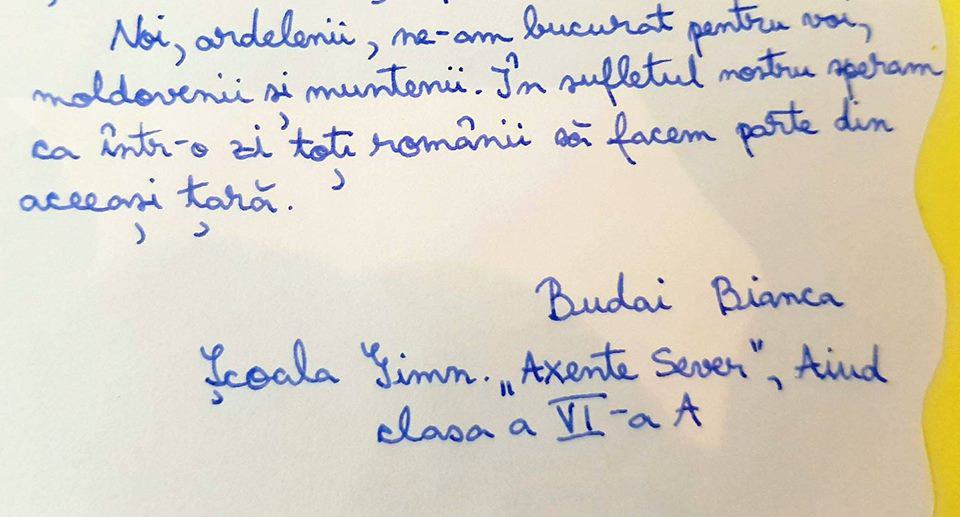 Noi, ardelenii, ne-am bucurat pentru voi,
moldovenii și muntenii. În sufletul nostru speram
ca într-o zi toți românii să facem parte din
aceeași țară.
Budai Bianca
Școala Gimn. „Axente Sever”, Aiud
clasa a VI-a A